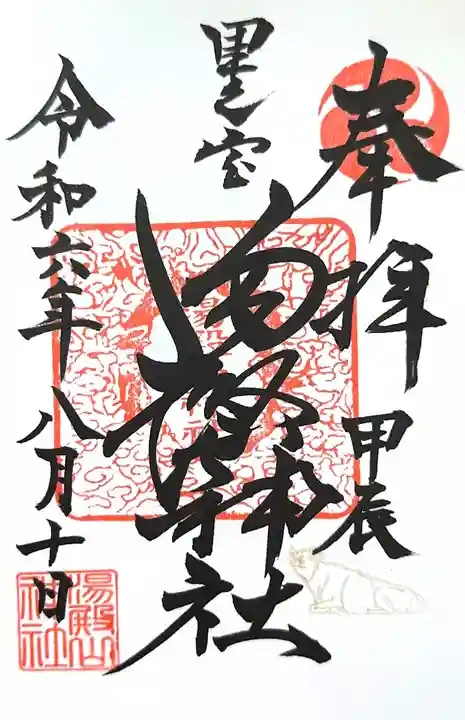 奉拝 甲辰
里之宮
湯殿山神社
令和六年八月十日
湯殿山
神社